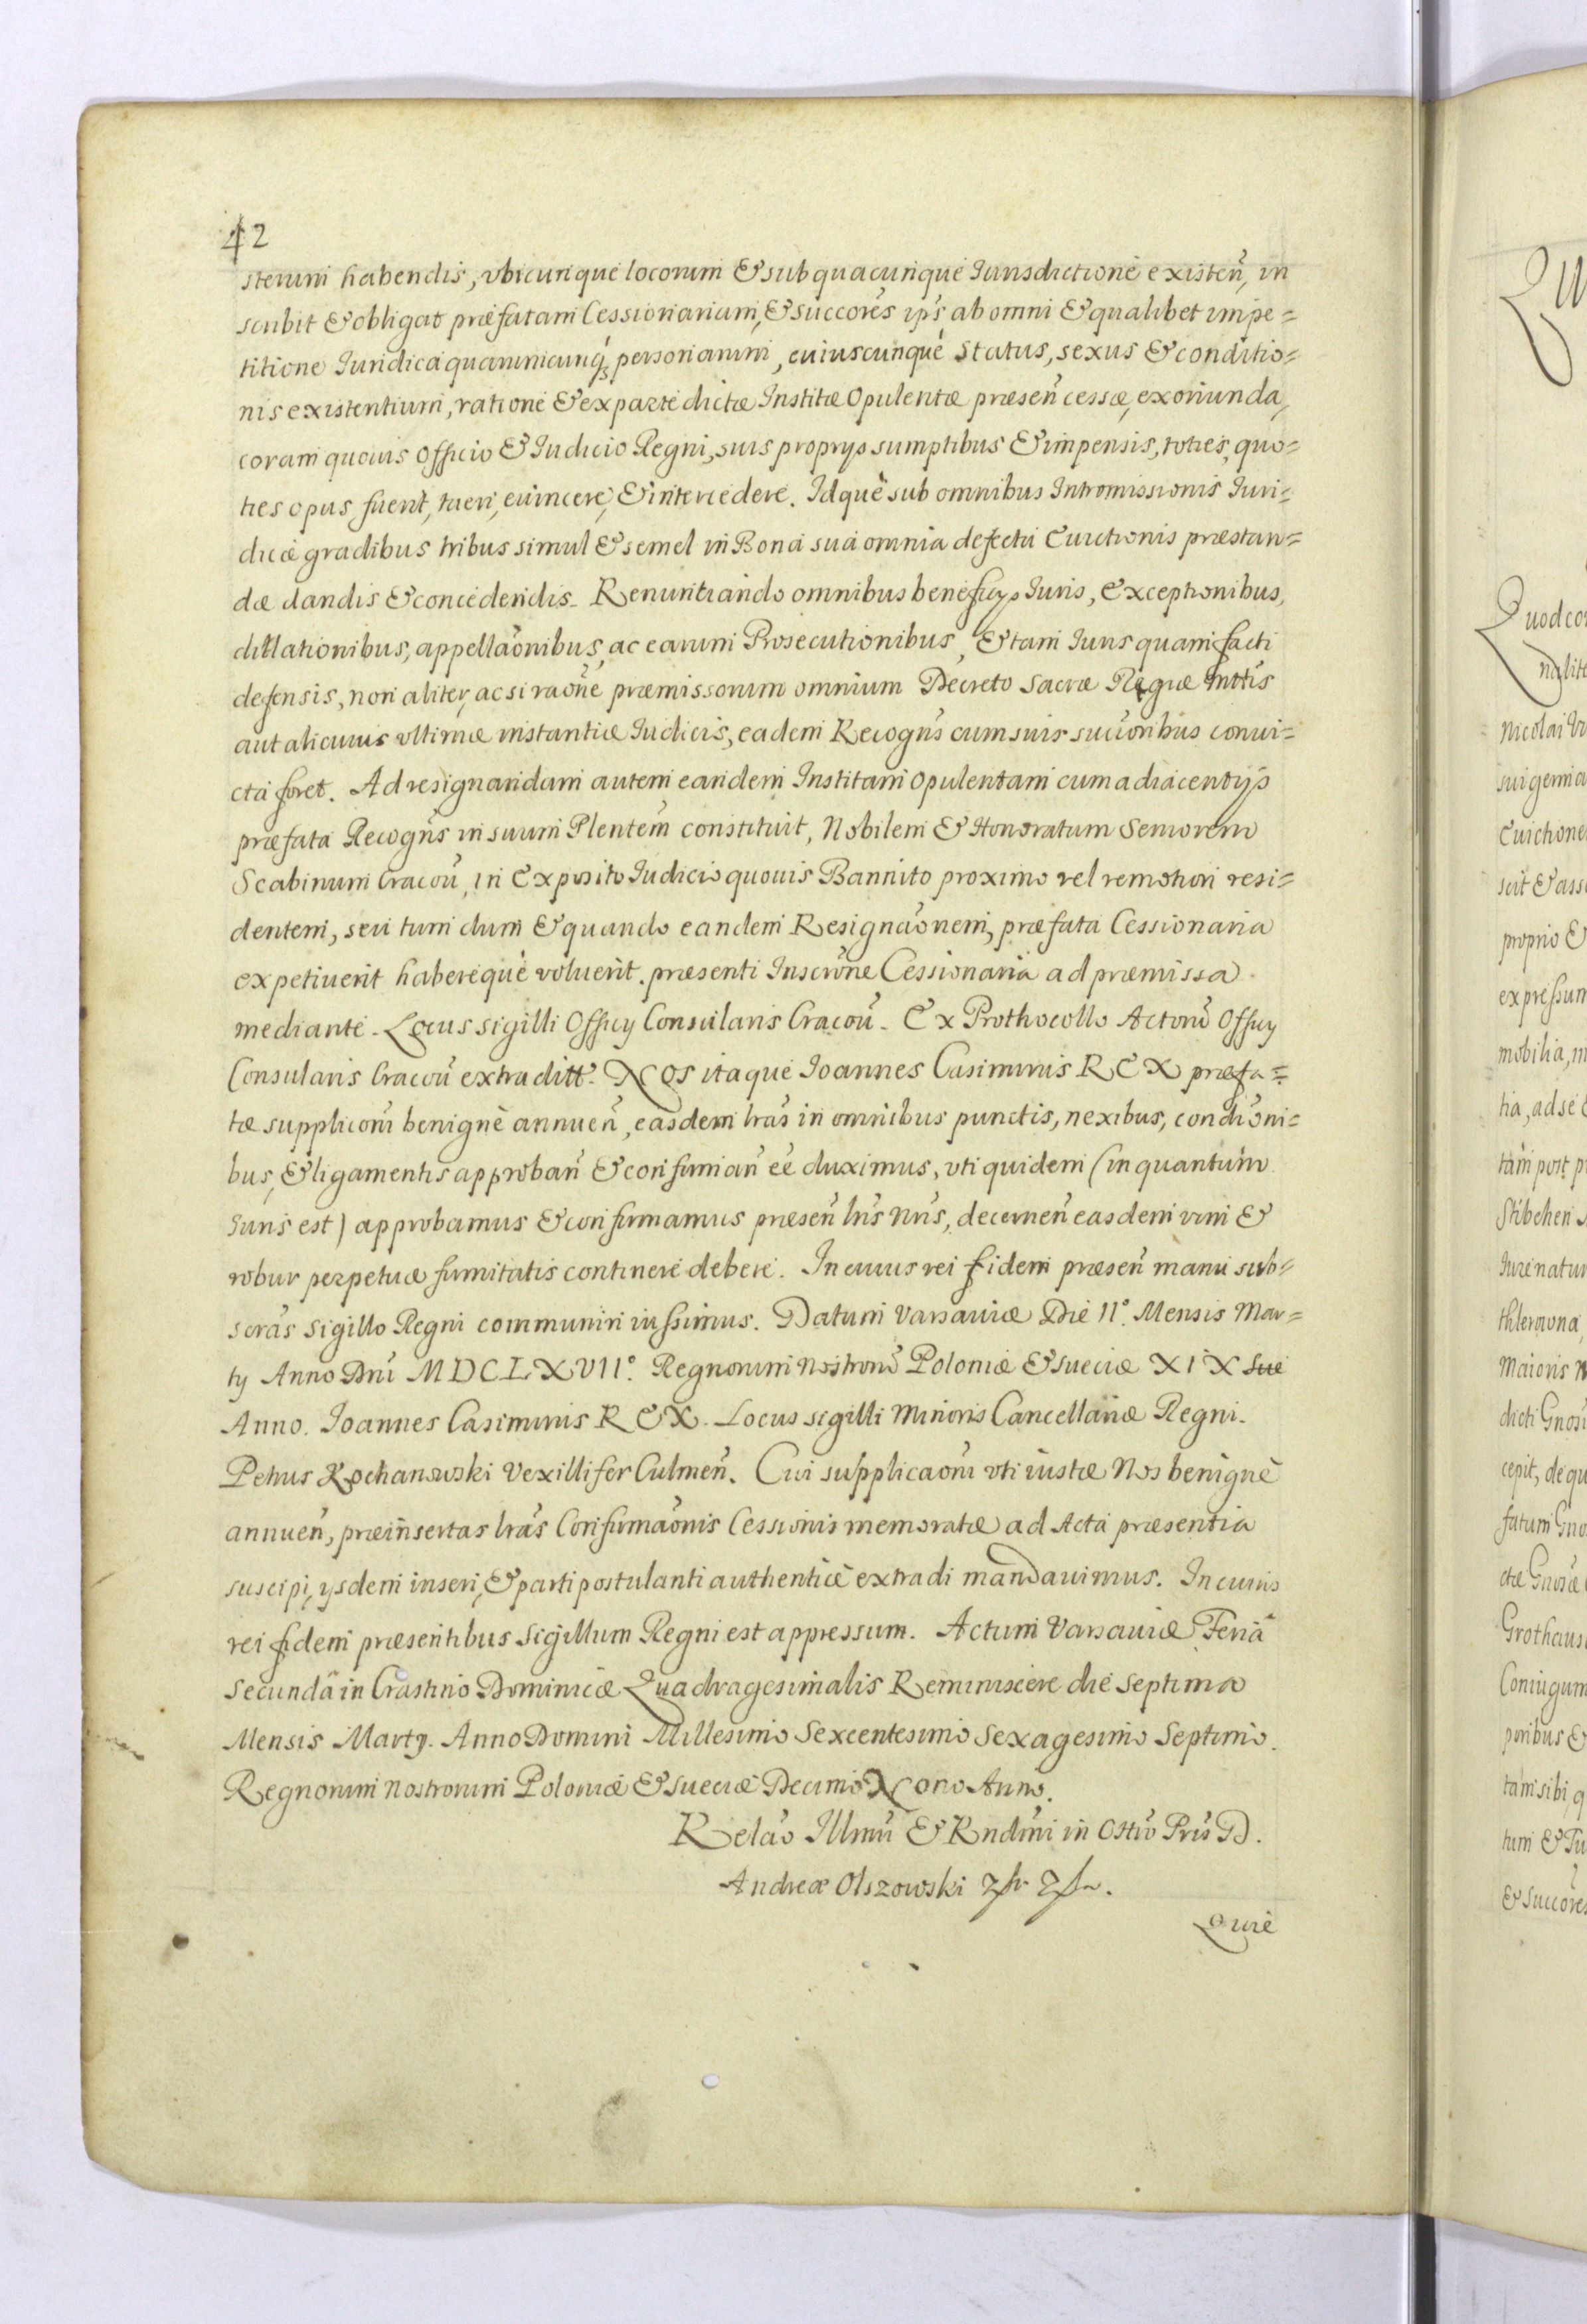 42
sterum habendis, vbicunque locorum & sub quacunque Iurisdictione existen̄, in
scribit & obligat præfatam Cessionariam, & succōres ip̄s ab omni & qualibet impe=
titione Iuridica quarumcunq3 personarum, cuiuscunque Status, sexus & conditio=
nis existentium, ratione & ex parte dictæ Institæ Opulentæ præsen̄ cessæ, exoriunda,
coram quouis Officio & Iudicio Regni, suis proprys sumptibus & impensis, toties, quo=
ties opus fuerit, tueri, euincere, & intercedere. Idque sub omnibus Intromissionis Iuri=
dicæ gradibus tribus simul & semel in Bona sua omnia defectu Euictionis præstan=
dæ dandis & concedendis. Renuntiando omnibus beneficys Iuris, Exceptionibus,
dillationibus, appellaōnibus, ac earum Prosecutionibus, & tam Iuris quam facti
defensis, non aliter, ac si raōne præmissorum omnium Decreto Sacræ Regiæ Mttis
aut alicuius vltimæ instantiæ Iudicis, eadem Recogn̄s cum suis succōribus conui=
cta foret. Ad resignandam autem eandem Institam opulentam cum adiacentijs
præfata Recogn̄s in suum Plentem̄ constituit, Nobilem & Honoratum Seniorem
Scabinum Cracou̅, in Exposito Iudicio quouis Bannito proximo vel remotiori resi=
dentem, seu tum dum & quando eandem Resignāonem, præfata Cessionaria
expetiuerit habereque voluerit. præsenti Inscrōne Cessionaria ad præmissa
mediante. Locus sigilli Officy Consularis Cracou̅. Ex Prothocollo Actoru̅ Officy
Consularis Cracou̅ extraditt. NOS itaque Ioannes Casimirus REX præfa=
tæ supplicōni benignè annuen̄, easdem lrās in omnibus punctis, nexibus, condiōni=
bus, & ligamentis approban̄ & confirmān ēē duximus, vti quidem (in quantum
Iuris est) approbamus & confirmamus præsen̄ lrīs nrīs, decernen̄ easdem vim &
robur perpetuæ firmitatis continere debere. In cuius rei fidem præsen̄ manu sub=
scrās sigillo Regni communiri iussimus. Datum Varsauiæ Die 11°. Mensis Mar=
ty Anno Dnī MDCLXVII°. Regnorum Nostroru̅ Poloniæ & Sueciæ XIX Sue
Anno. Ioannes Casimirus REX. Locus sigilli Minoris Cancellariæ Regni.
Petrus Kochanowski Vexillifer Culmen̄. Cui supplicaōni vti iustæ Nos benignè
annuen̄, præinsertas lrās Confirmaōnis Cessionis memoratæ ad Acta præsentia
suscipi, ysdem inseri, & parti postulanti authenticè extradi mandauimus. In cuius
rei fidem præsentibus Sigillum Regni est appressum. Actum Varsauiæ Feriâ
Secundâ in Crastino Dominicæ Quadragesimalis Reminiscere die Septima
Mensis Marty. Anno Domini Millesimo Sexcentesimo Sexagesimo Septimo.
Regnorum nostrorum Poloniæ & Sueciæ Decimo Nono Anno.
Relaō Illmi & Rndmi in Chro Pris D.
Andreæ Olszowski
Quiè